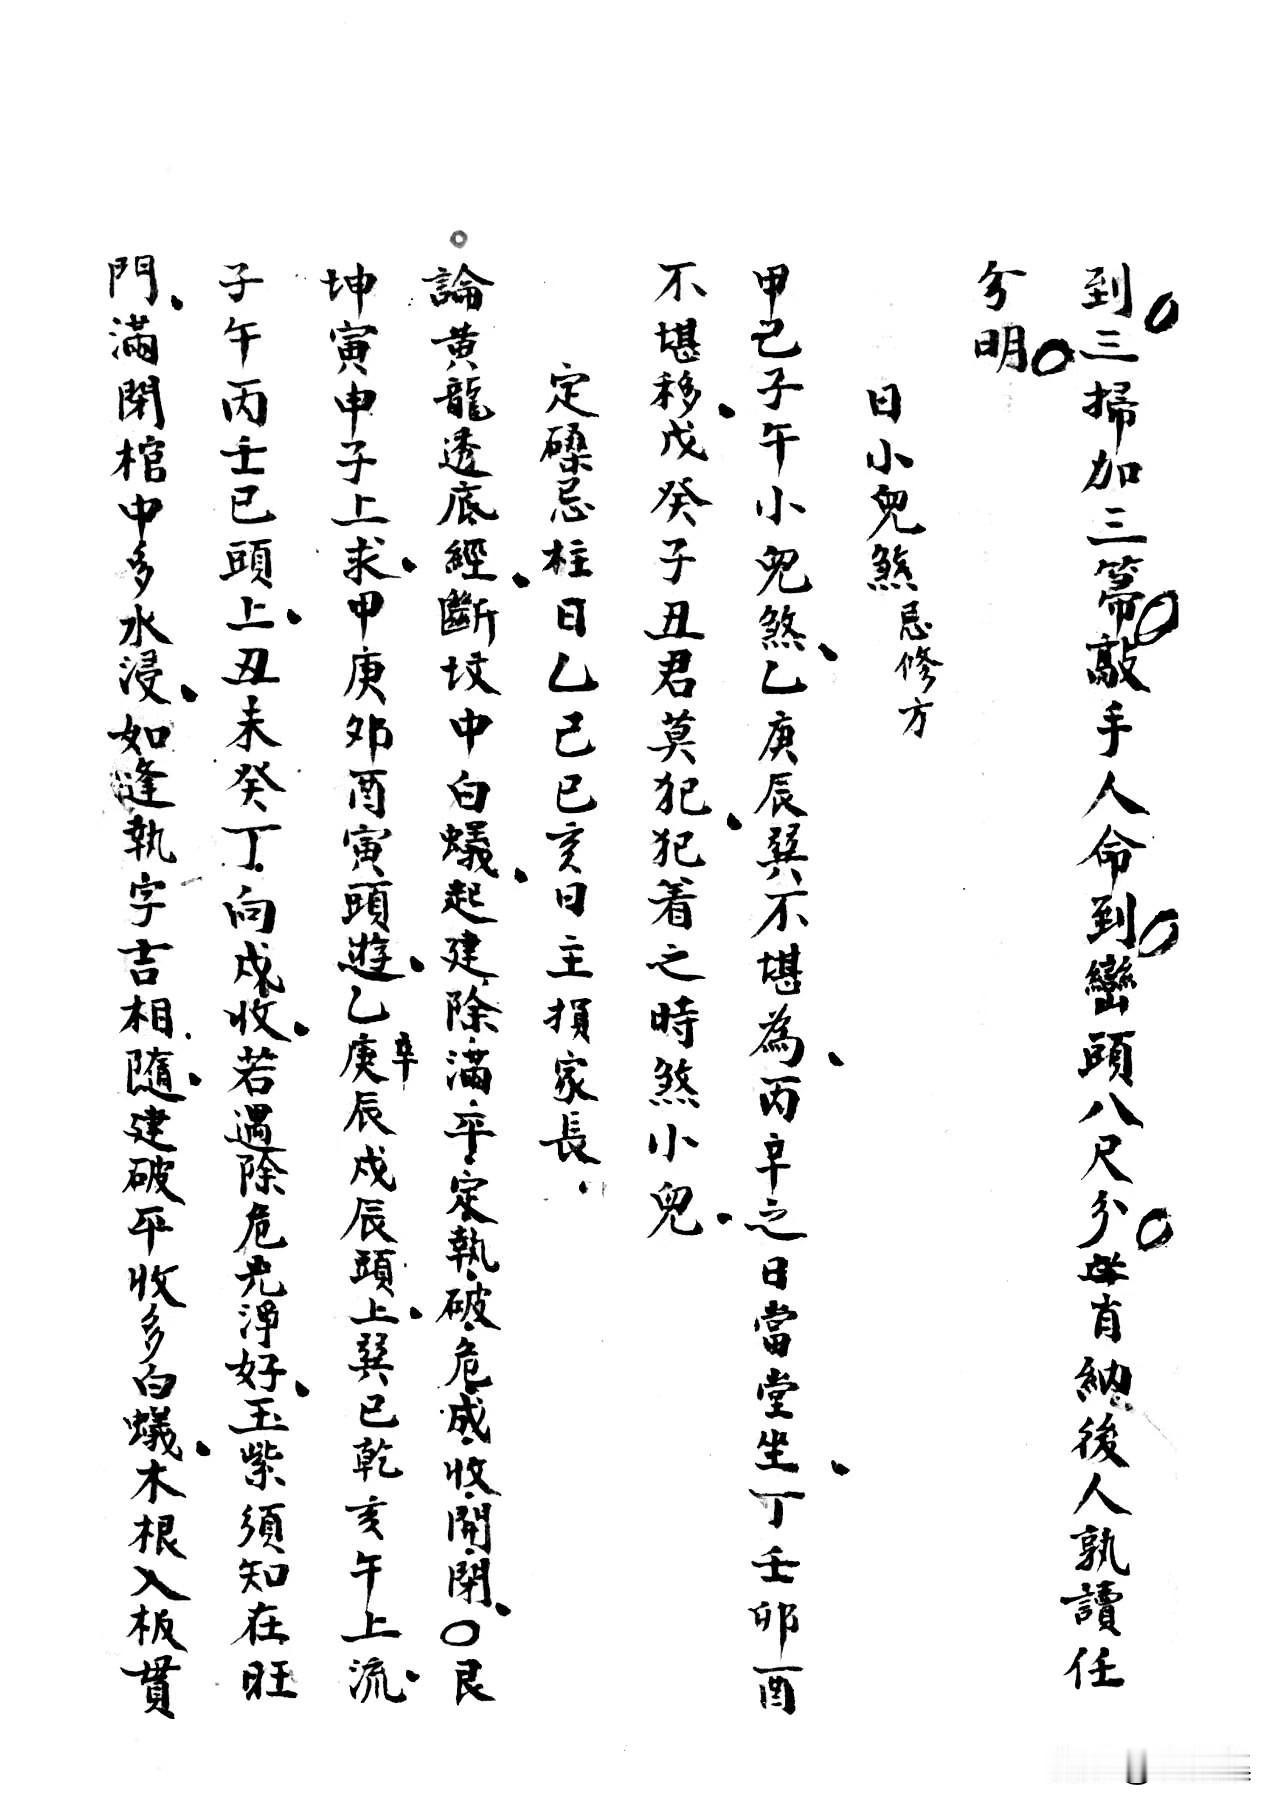 到三掃加三䓆敲手人命到巒頭八尺分毋肯納後人孰讀任
分明
日小兒煞忌修方
甲己子午小兒煞乙庚辰巽不堪為丙辛之日當堂坐丁壬卯酉
不堪移戊癸子丑君莫犯犯着之時煞小兒
定磉忌柱日乙己巳亥日主損家長
論黃龍透底經斷坟中白蟻起建除滿平定執破危成收開閉〇艮
坤寅申子上求甲庚卯酉寅頭遊乙庚辛辰戌辰頭上巽巳乾亥午上流
子午丙壬巳頭上丑未癸丁向戌收若遇除危光淨好玉紫須知在旺
門滿閉棺中多水浸如逢執字吉相隨建破平收多白蟻木根入板貫